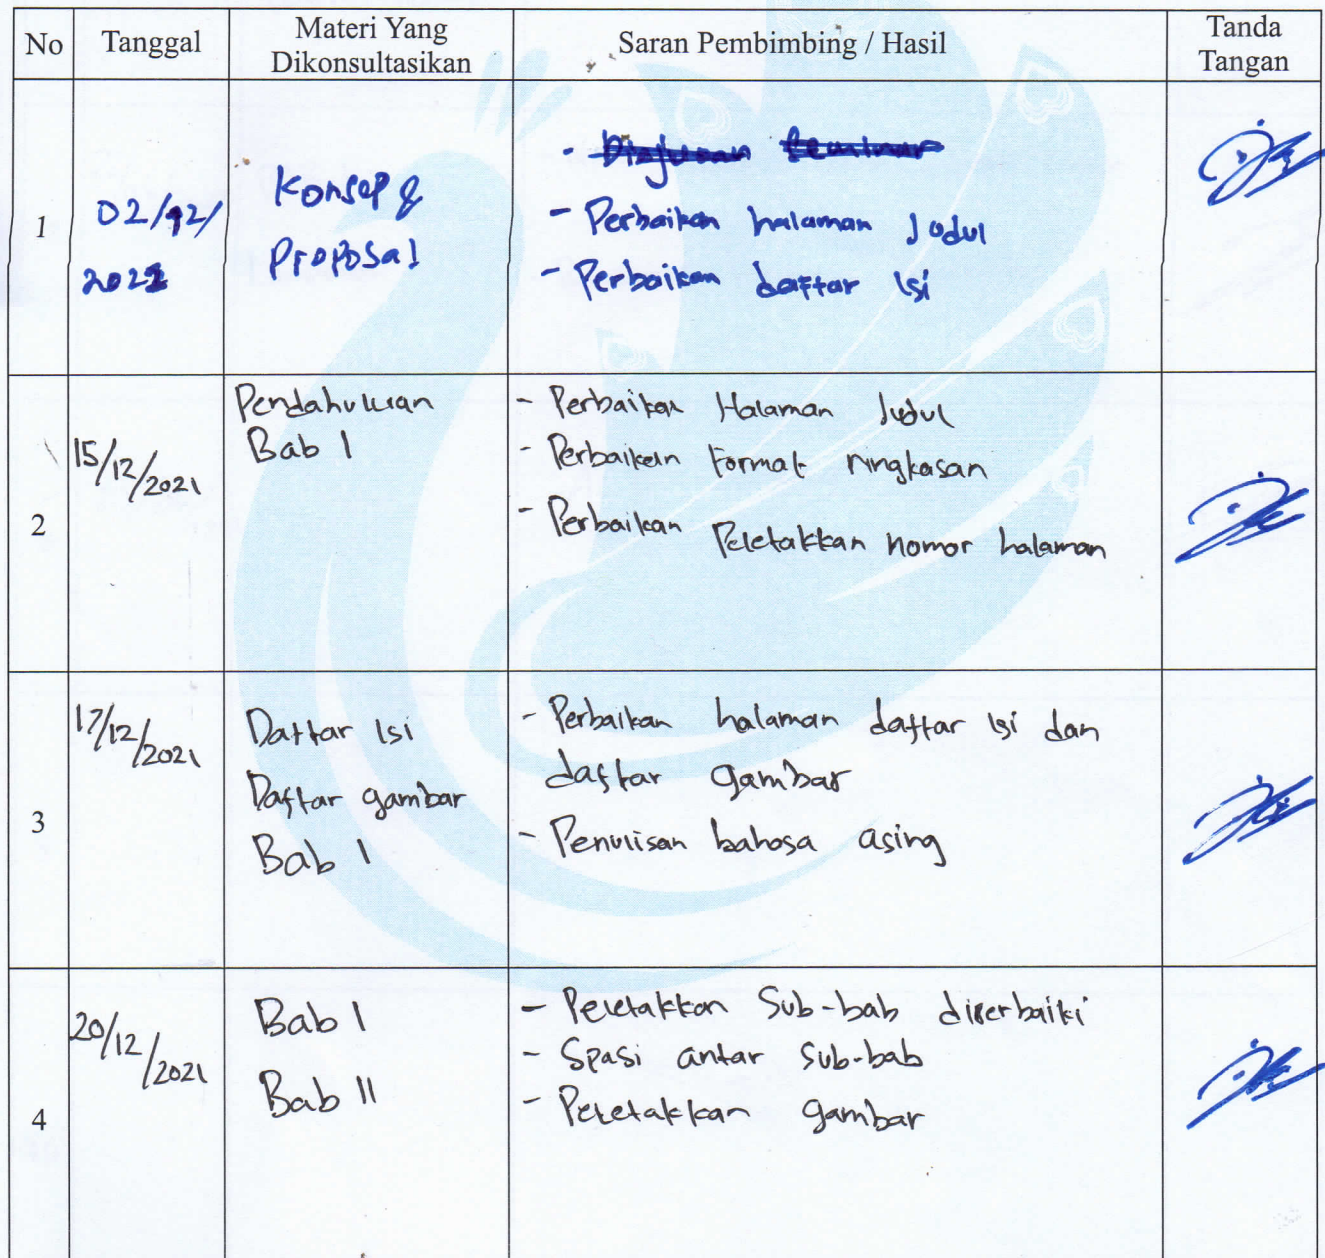 No
Tanggal
Materi Yang
Dikonsultasikan
Saran Pembimbing / Hasil
Tanda
Tangan
1
02/12/
2021
Konsep &
Proposal
- Diajukan Seminar
- Perbaikan halaman Judul
- Perbaikan daftar Isi
2
15/12/2021
Pendahuluan
Bab I
- Perbaikan Halaman Judul
- Perbaikan Format ringkasan
- Perbaikan Peletakkan nomor halaman
3
17/12/2021
Daftar Isi
Daftar gambar
Bab I
- Perbaikan halaman daftar isi dan
daftar gambar
- Penulisan bahasa asing
4
20/12/2021
Bab I
Bab II
- Peletakkan Sub-bab diperbaiki
- Spasi antar Sub-bab
- Peletakkan gambar